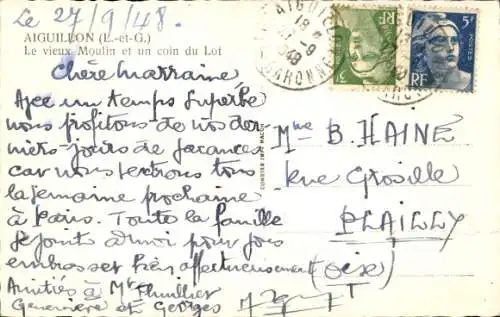 Le 27/9/48.
AIGUILLON (L.-et-G.)
Le vieux Moulin et un coin du Lot
Chère Marraine
Avec un temps superbe
nous profitons de nos der-
niers jours de vacances
car nous rentrons tous
la semaine prochaine
à Paris. Toute la famille
se joint à moi pour vous
embrasser très affectueusement
Amitiés à Mr Thuillier
Geneviève et Georges
Mme B. HAINE
rue
PLAILLY
(Oise)
AIGUILLON
18
1948
GARONNE
RF
3F
5F
RF